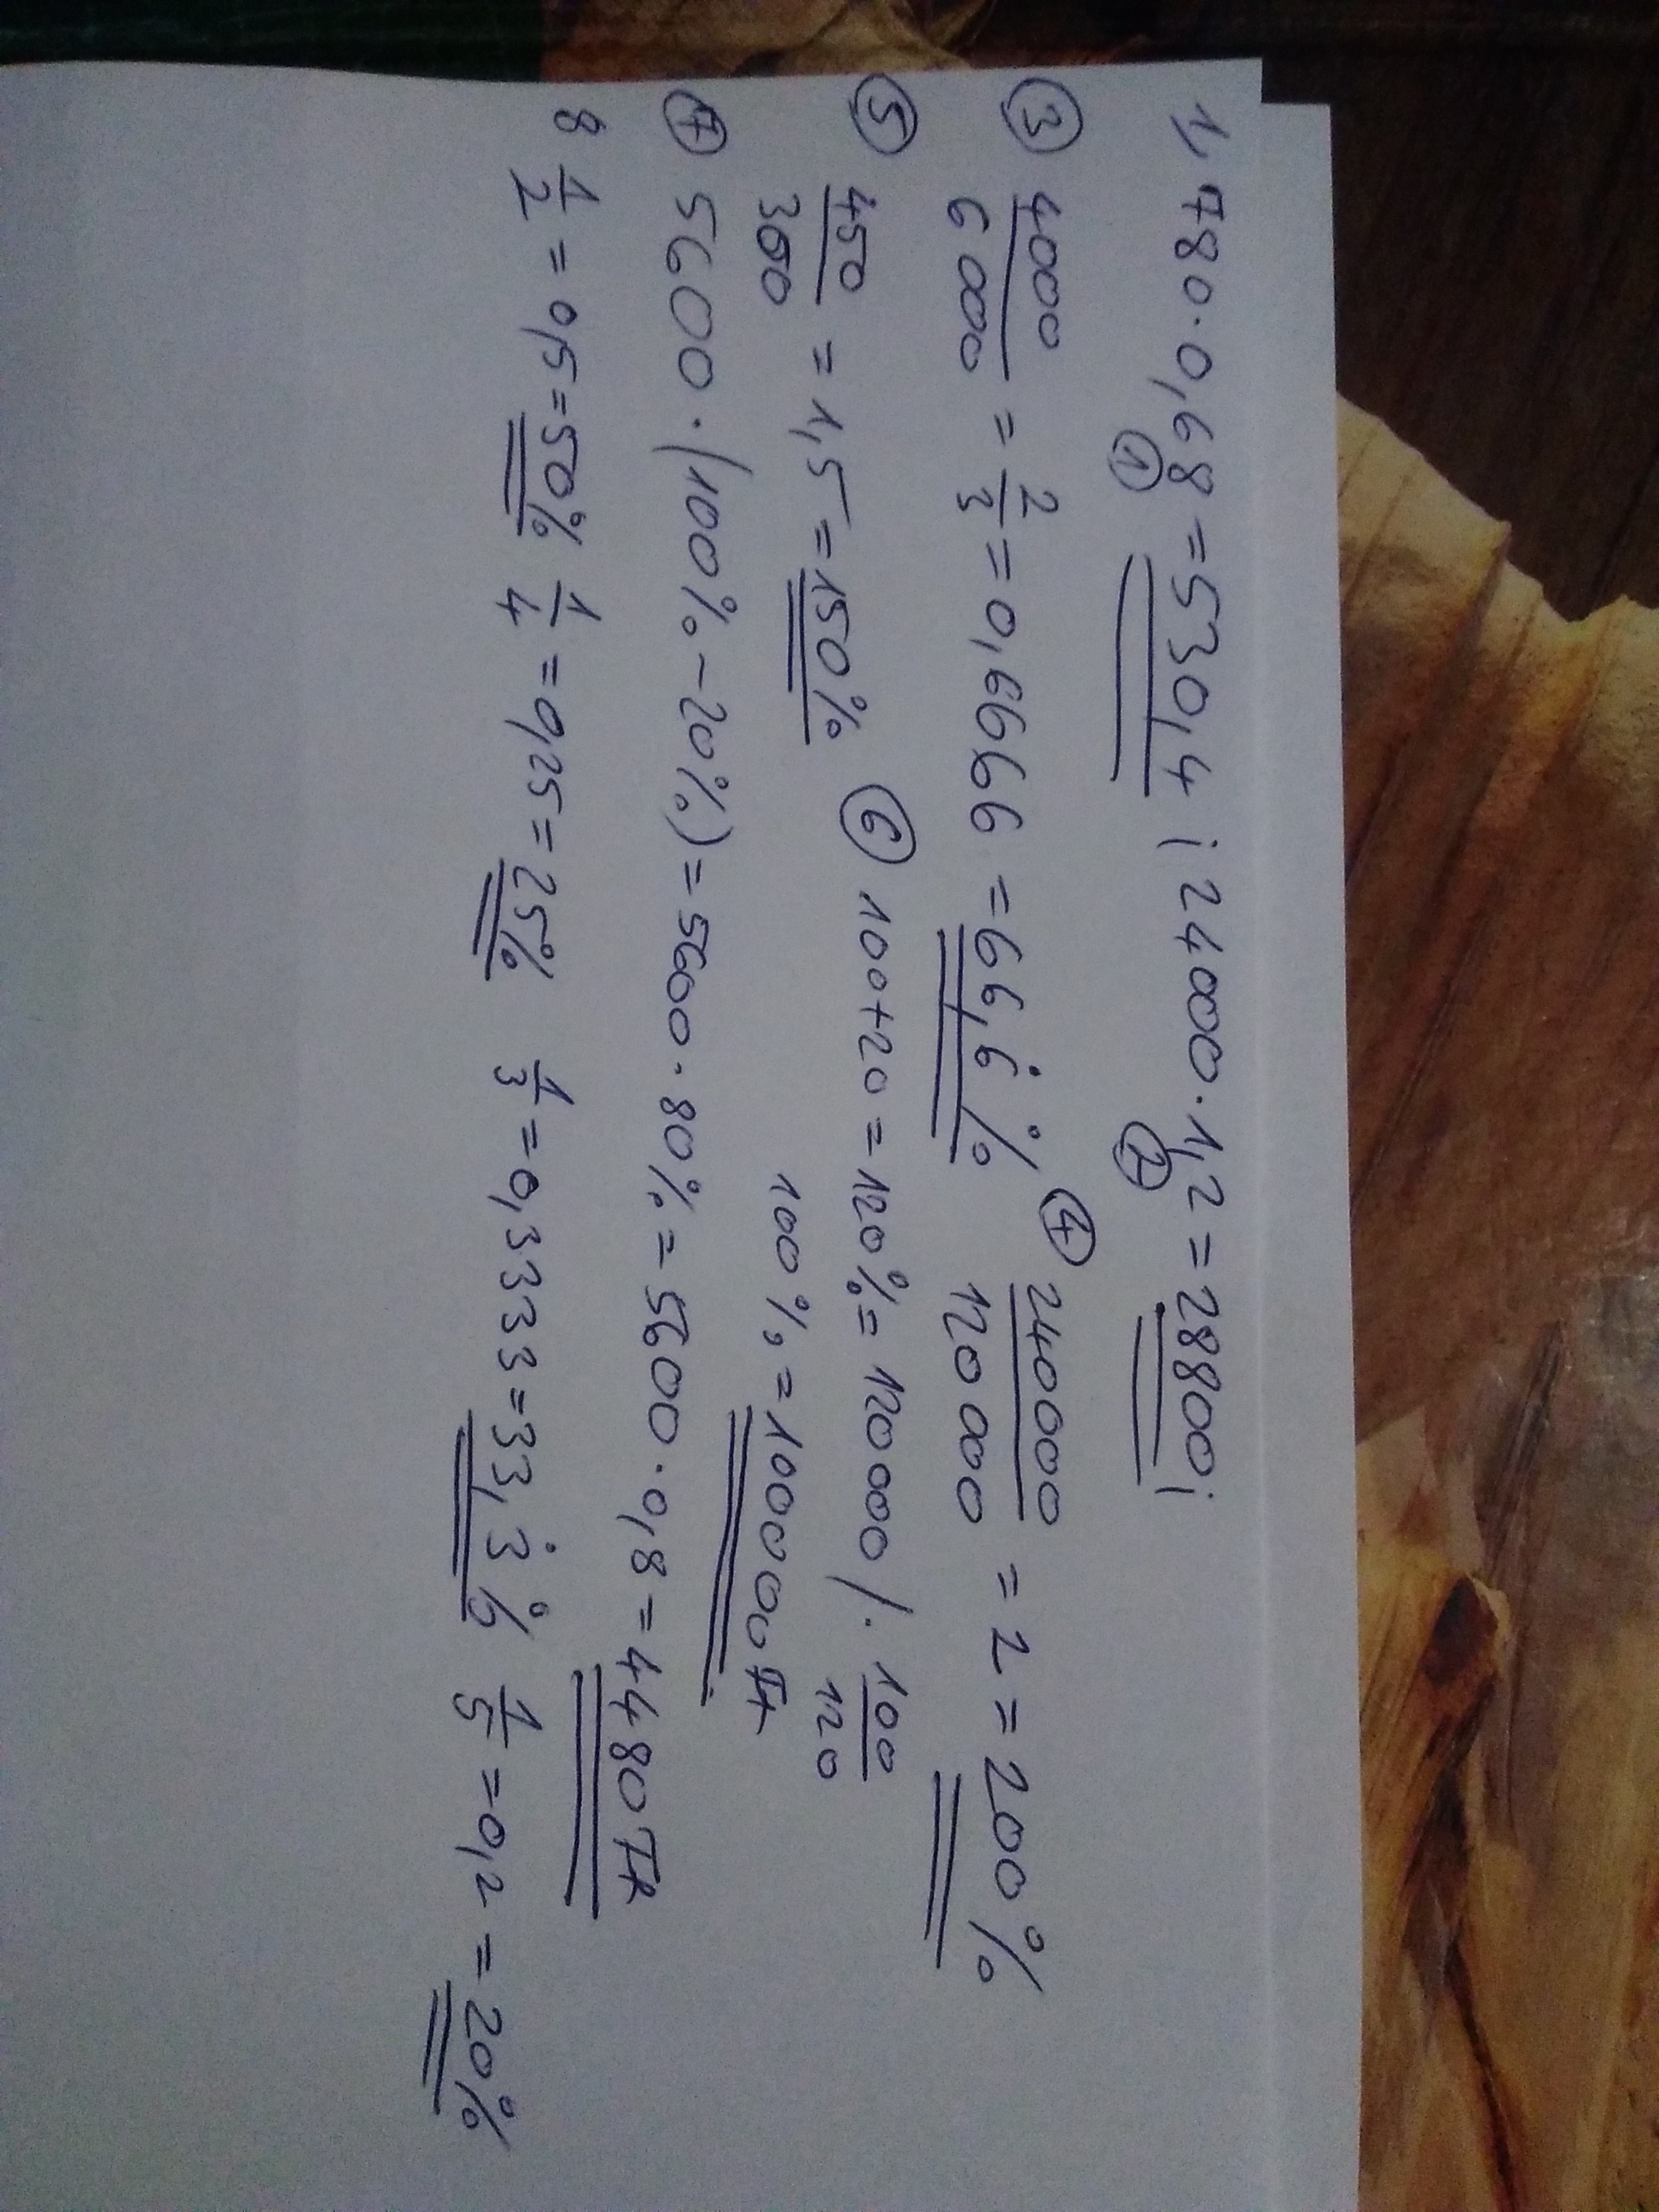 1, 780·0,68 = 530,4 ; 24000·1,2 = 28800;
① ②
③ 4000/6000 = 2/3 = 0,6666 = 66,6̇% ④ 240000/120000 = 2 = 200%
⑤ 450/300 = 1,5 = 150% ⑥ 100+20 = 120% = 120000 /· 100/120
100% = 100000 Ft
⑦ 5600·(100%-20%) = 5600·80% = 5600·0,8 = 4480 Ft
8 1/2 = 0,5 = 50% 1/4 = 0,25 = 25% 1/3 = 0,3333 = 33,3̇% 1/5 = 0,2 = 20%